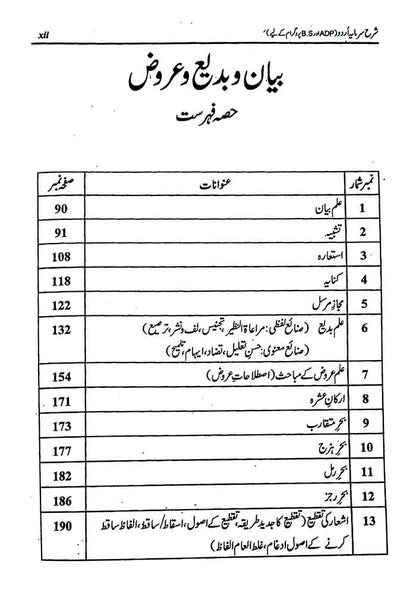 شرح سرمایہ اُردو (ADP اور B.S پروگرام کے لیے) xii
بیان و بدیع و عروض
حصہ فہرست
نمبر شمار عنوانات صفحہ نمبر
1 علم بیان 90
2 تشبیہ 91
3 استعارہ 108
4 کنایہ 118
5 مجاز مرسل 122
6 علم بدیع (صنائع لفظی: مراعاۃ النظیر، تجنیس، لف و نشر، ترصیع) 132
(صنائع معنوی: حسنِ تعلیل، تضاد، ایہام، تلمیح)
7 علم عروض کے مباحث (اصطلاحاتِ عروض) 154
8 ارکانِ عشرہ 171
9 بحرِ متقارب 173
10 بحرِ ہزج 177
11 بحرِ رمل 182
12 بحرِ رجز 186
13 اشعار کی تقطیع (تقطیع کا جدید طریقہ، تقطیع کے اصول، اسقاط/ساقط، الفاظ ساقط 190
کرنے کے اصول ادغام، غلط العام الفاظ)